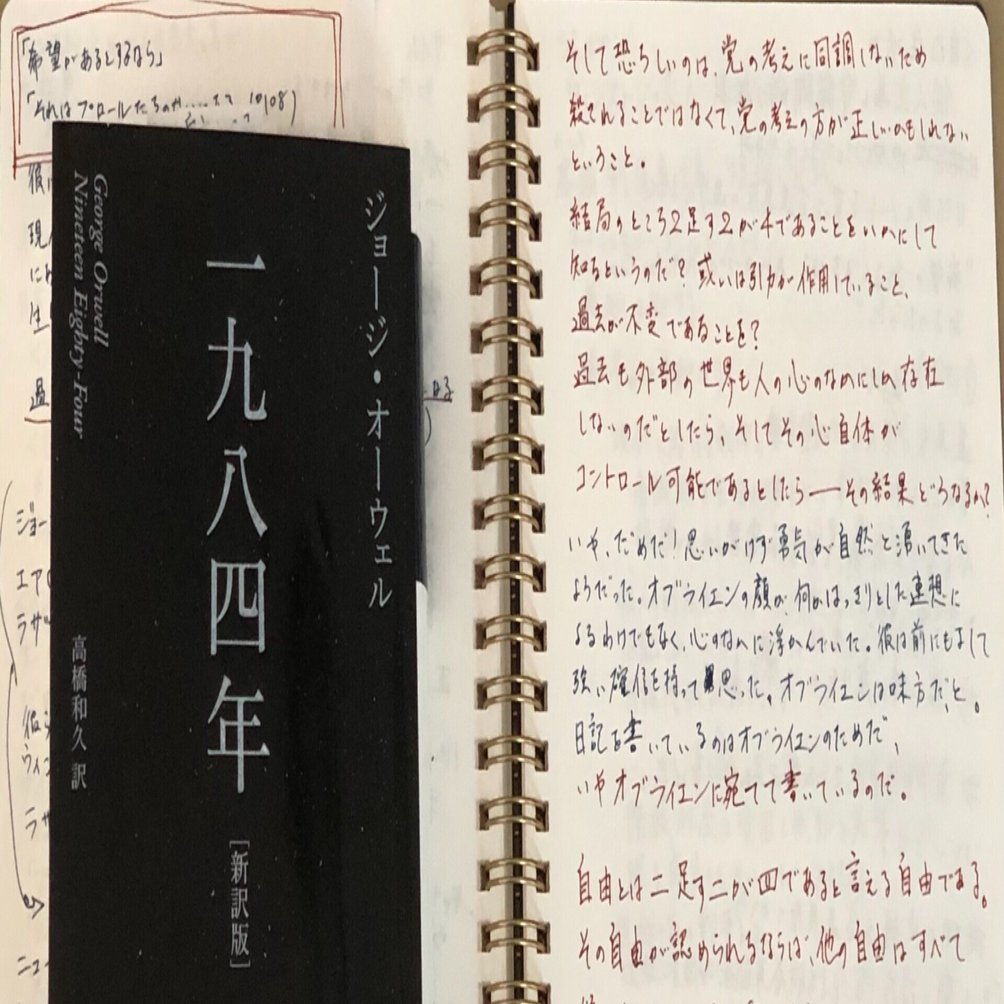 「希望があるとするなら」
「それはプロールたちのか
108)
彼
現
に
生
過
ジョー
エア
ラザ
彼ら
ウィン
ラザ
ニュー
ジョージ・オーウェル
一九八四年
[新訳版]
高橋和久 訳
George Orwell
Nineteen Eighty-Four
そして恐ろしいのは、党の考えに同調しないため
殺されることではなくて、党の考えの方が正しいかもしれない
ということ。
結局のところ2足す2が4であることをいかにして
知るというのだ?或いは引力が作用していること、
過去が不変であることを?
過去も外部の世界も人の心のなかにしか存在
しないのだとしたら、そしてその心自体が
コントロール可能であるとしたら――その結果どうなるか?
いや、だめだ!思いがけず勇気が自然と湧いてきた
ようだった。オブライエンの顔が、何かはっきりとした連想に
よるわけでもなく、心のなかに浮かんでいた。彼は前にもまして
強い確信を持って思った。オブライエンは味方だ、と。
日記を書いているのはオブライエンのためだ、
いやオブライエンに宛てて書いているのだ。
自由とは二足す二が四であると言える自由である。
その自由が認められるならば、他の自由はすべて